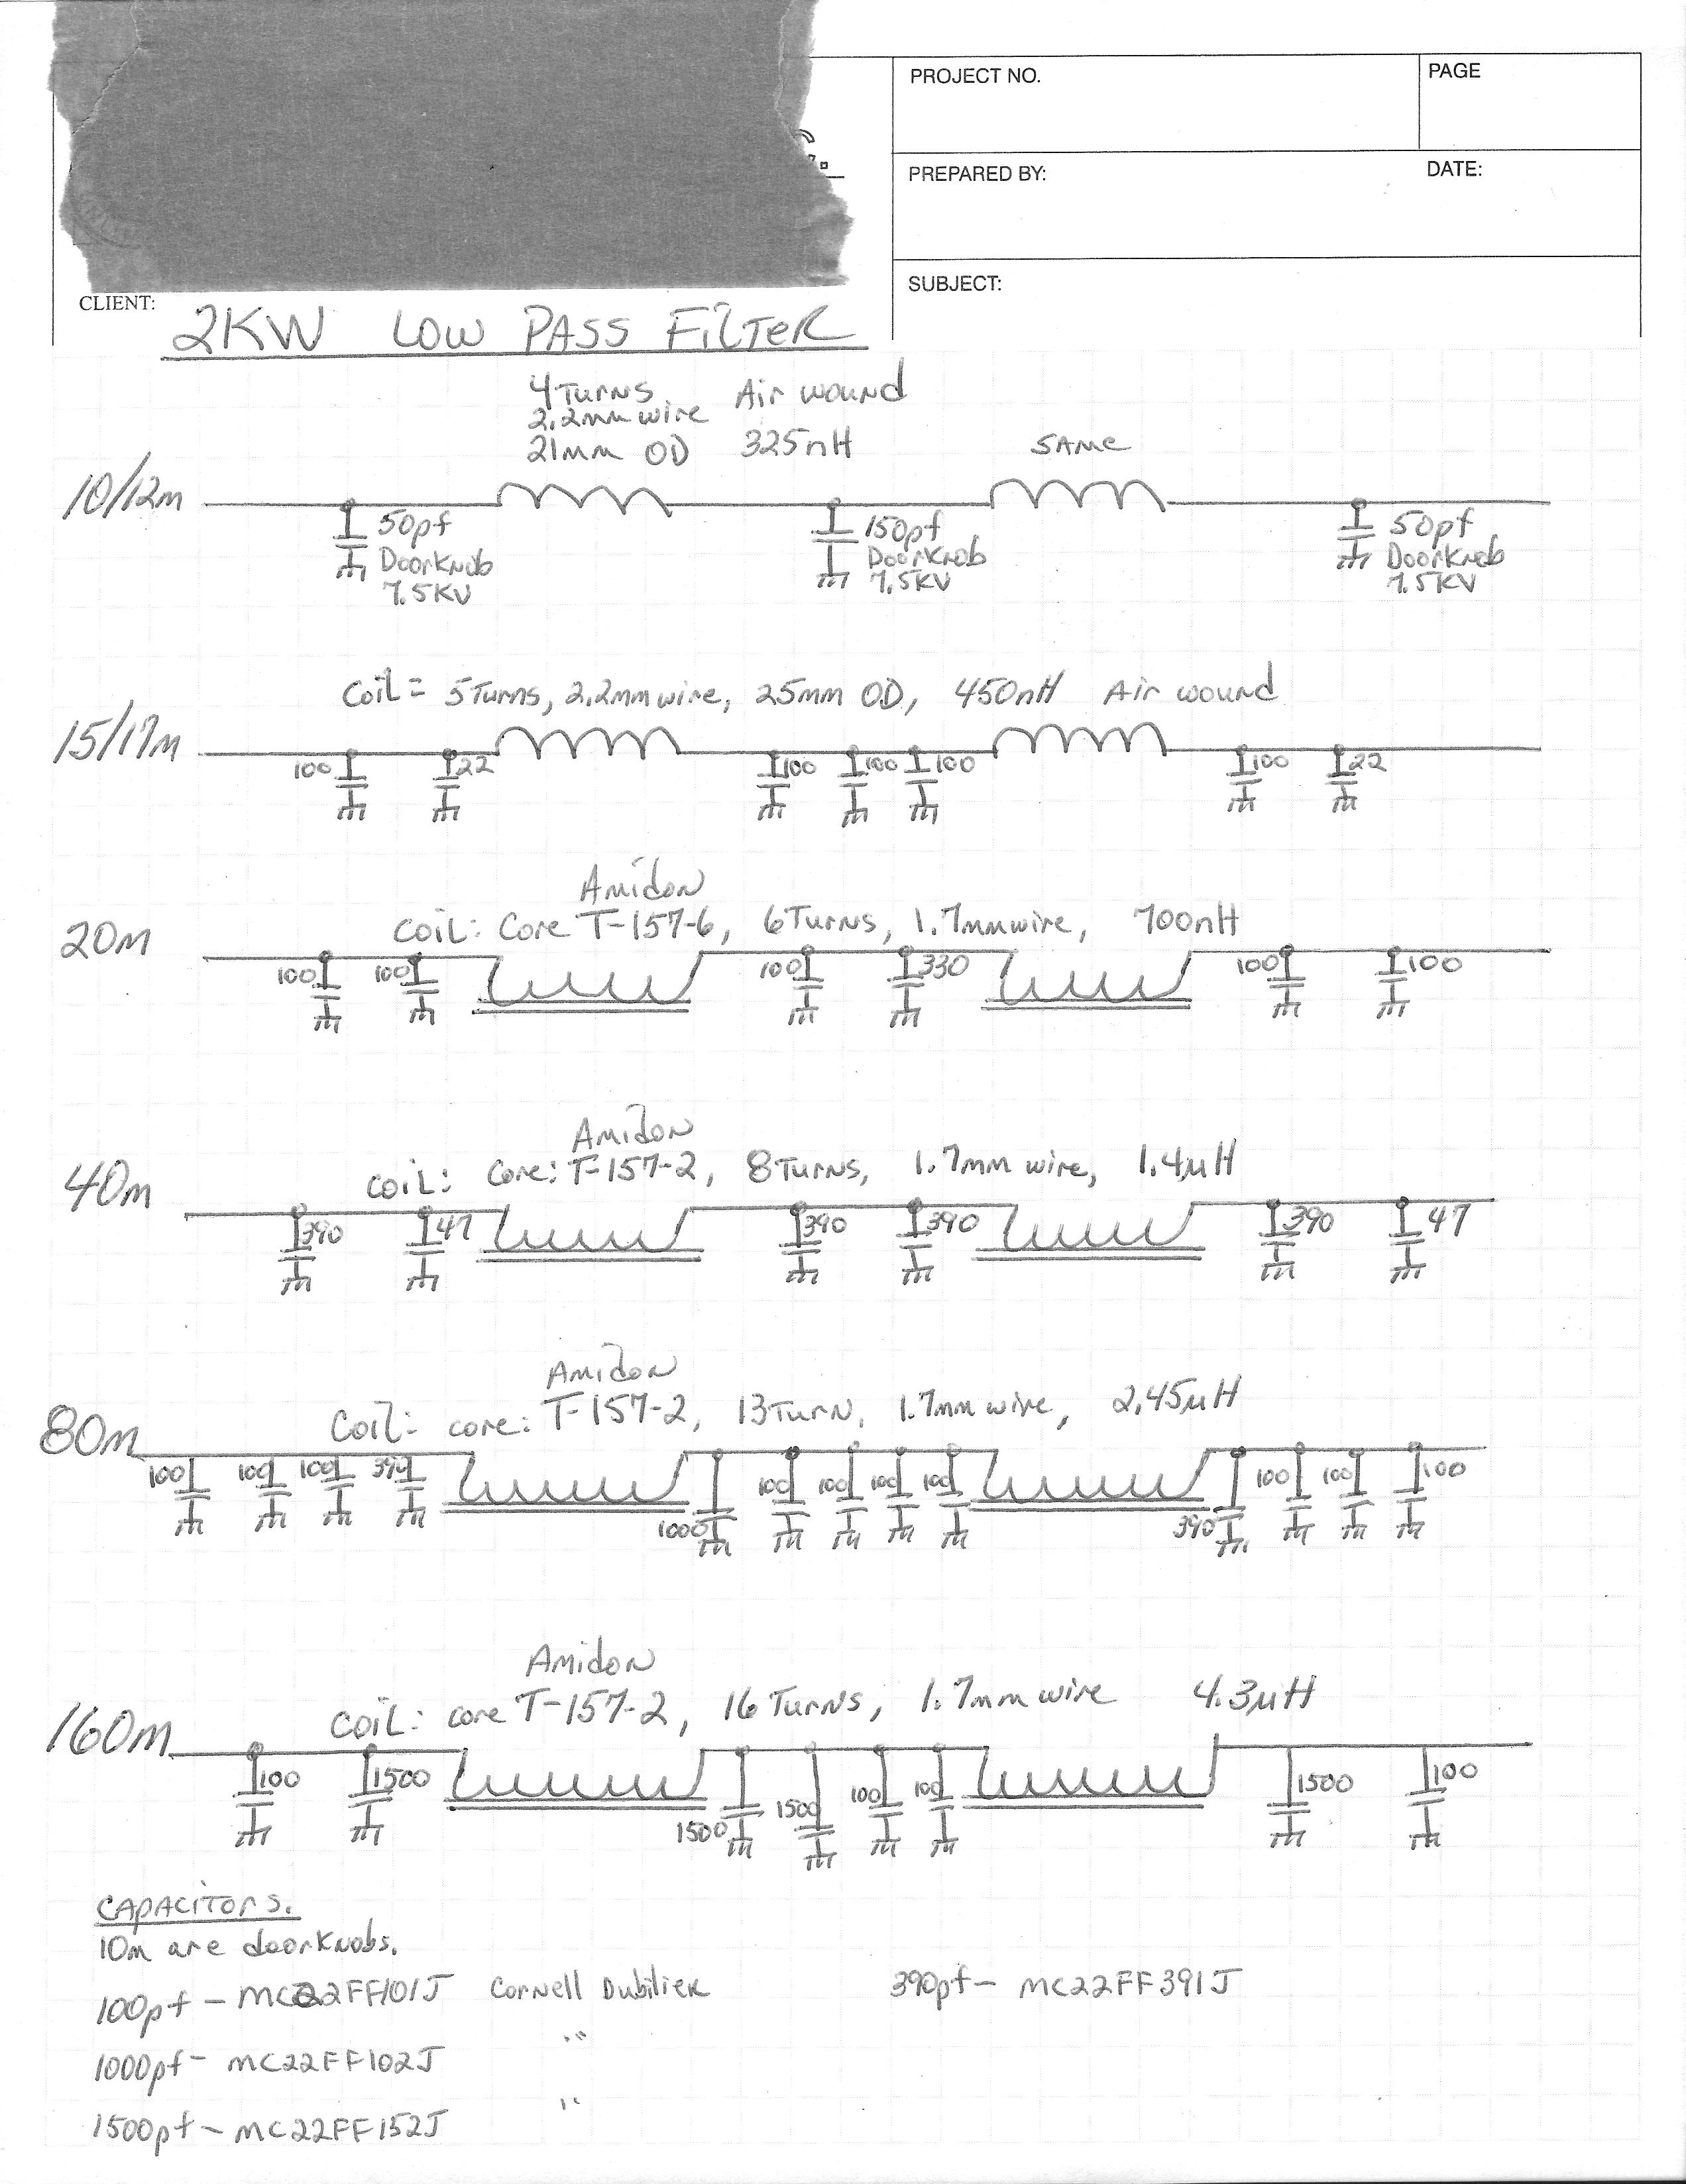 PROJECT NO.
PAGE
PREPARED BY:
DATE:
SUBJECT:
CLIENT:
2KW LOW PASS FILTER
4 Turns
2.2mm wire
21mm OD
Air wound
325nH
SAME
10/12m
50pf
Doorknob
7.5KV
150pf
Doorknob
7.5KV
50pf
Doorknob
7.5KV
Coil = 5 Turns, 2.2mm wire, 25mm OD, 450nH Air wound
15/17m
100 22 100 100 100 100 22
Amidon
coil: Core T-157-6, 6 Turns, 1.7mm wire, 700nH
20m
100 100 100 330 100 100
Amidon
coil: Core: T-157-2, 8 Turns, 1.7mm wire, 1.4µH
40m
390 47 390 390 390 47
Amidon
Coil: core: T-157-2, 13 Turn, 1.7mm wire, 2.45µH
80m
100 100 100 390 1000 100 100 100 100 390 100 100 100
Amidon
coil: core T-157-2, 16 Turns, 1.7mm wire 4.3µH
160m
100 1500 1500 1500 100 100 1500 100
CAPACITORS.
10m are doorknobs.
100pf - MC22FF101J Cornell Dubilier 390pf - MC22FF391J
1000pf - MC22FF102J "
1500pf - MC22FF152J "